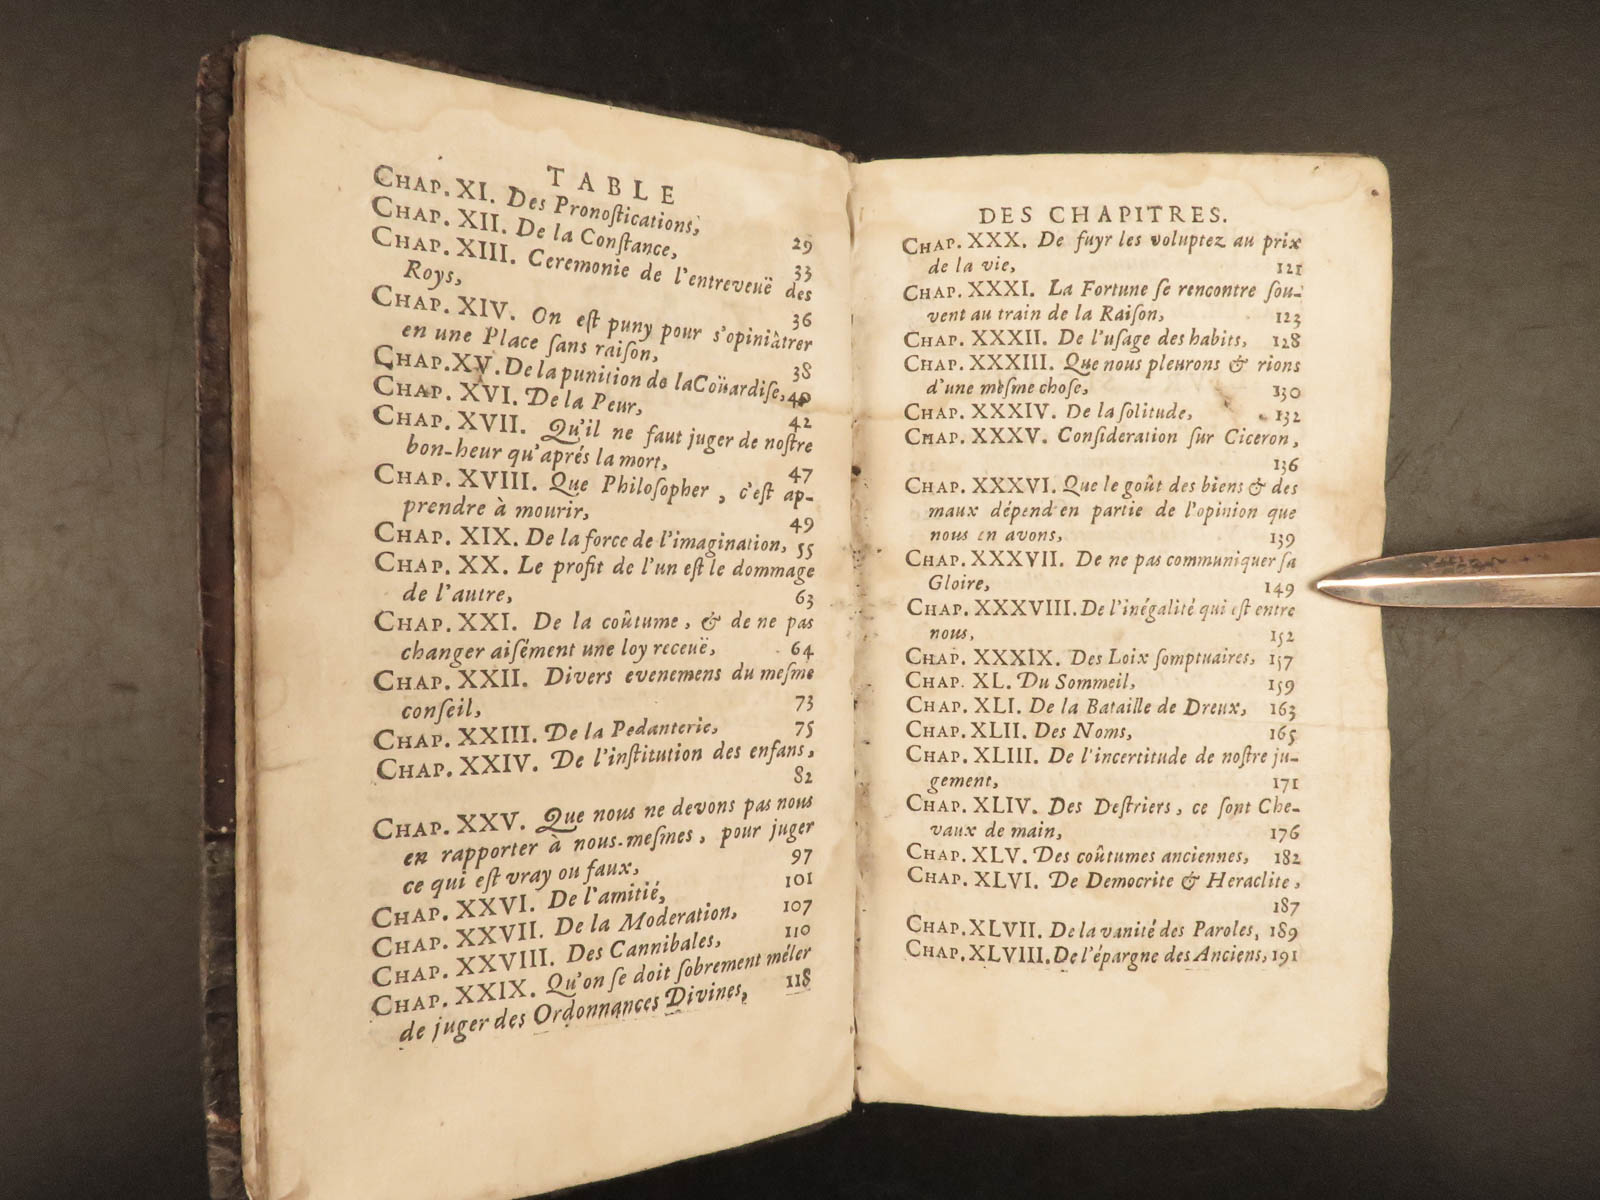 TABLE
CHAP. XI. Des Pronoſtications, 29
CHAP. XII. De la Conſtance, 33
CHAP. XIII. Ceremonie de l'entreveuë des
Roys, 36
CHAP. XIV. On eſt puny pour s'opiniâtrer
en une Place ſans raiſon, 38
CHAP. XV. De la punition de la Coüardiſe, 40
CHAP. XVI. De la Peur, 42
CHAP. XVII. Qu'il ne faut juger de noſtre
bon-heur qu'aprés la mort, 47
CHAP. XVIII. Que Philoſopher, c'eſt ap-
prendre à mourir, 49
CHAP. XIX. De la force de l'imagination, 55
CHAP. XX. Le profit de l'un eſt le dommage
de l'autre, 63
CHAP. XXI. De la coûtume, & de ne pas
changer aiſément une loy receuë, 64
CHAP. XXII. Divers evenemens du meſme
conſeil, 73
CHAP. XXIII. De la Pedanterie, 75
CHAP. XXIV. De l'inſtitution des enfans,
82
CHAP. XXV. Que nous ne devons pas nous
en rapporter à nous-meſmes, pour juger
ce qui eſt vray ou faux, 97
CHAP. XXVI. De l'amitié, 101
CHAP. XXVII. De la Moderation, 107
CHAP. XXVIII. Des Cannibales, 110
CHAP. XXIX. Qu'on ſe doit ſobrement méler
de juger des Ordonnances Divines, 118
DES CHAPITRES.
CHAP. XXX. De fuyr les voluptez au prix
de la vie, 121
CHAP. XXXI. La Fortune ſe rencontre ſou-
vent au train de la Raiſon, 123
CHAP. XXXII. De l'uſage des habits, 128
CHAP. XXXIII. Que nous pleurons & rions
d'une meſme choſe, 130
CHAP. XXXIV. De la ſolitude, 132
CHAP. XXXV. Conſideration ſur Ciceron,
136
CHAP. XXXVI. Que le goût des biens & des
maux dépend en partie de l'opinion que
nous en avons, 139
CHAP. XXXVII. De ne pas communiquer ſa
Gloire, 149
CHAP. XXXVIII. De l'inégalité qui eſt entre
nous, 152
CHAP. XXXIX. Des Loix ſomptuaires, 157
CHAP. XL. Du Sommeil, 159
CHAP. XLI. De la Bataille de Dreux, 163
CHAP. XLII. Des Noms, 165
CHAP. XLIII. De l'incertitude de noſtre ju-
gement, 171
CHAP. XLIV. Des Deſtriers, ce ſont Che-
vaux de main, 176
CHAP. XLV. Des coûtumes anciennes, 182
CHAP. XLVI. De Democrite & Heraclite,
187
CHAP. XLVII. De la vanité des Paroles, 189
CHAP. XLVIII. De l'épargne des Anciens, 191